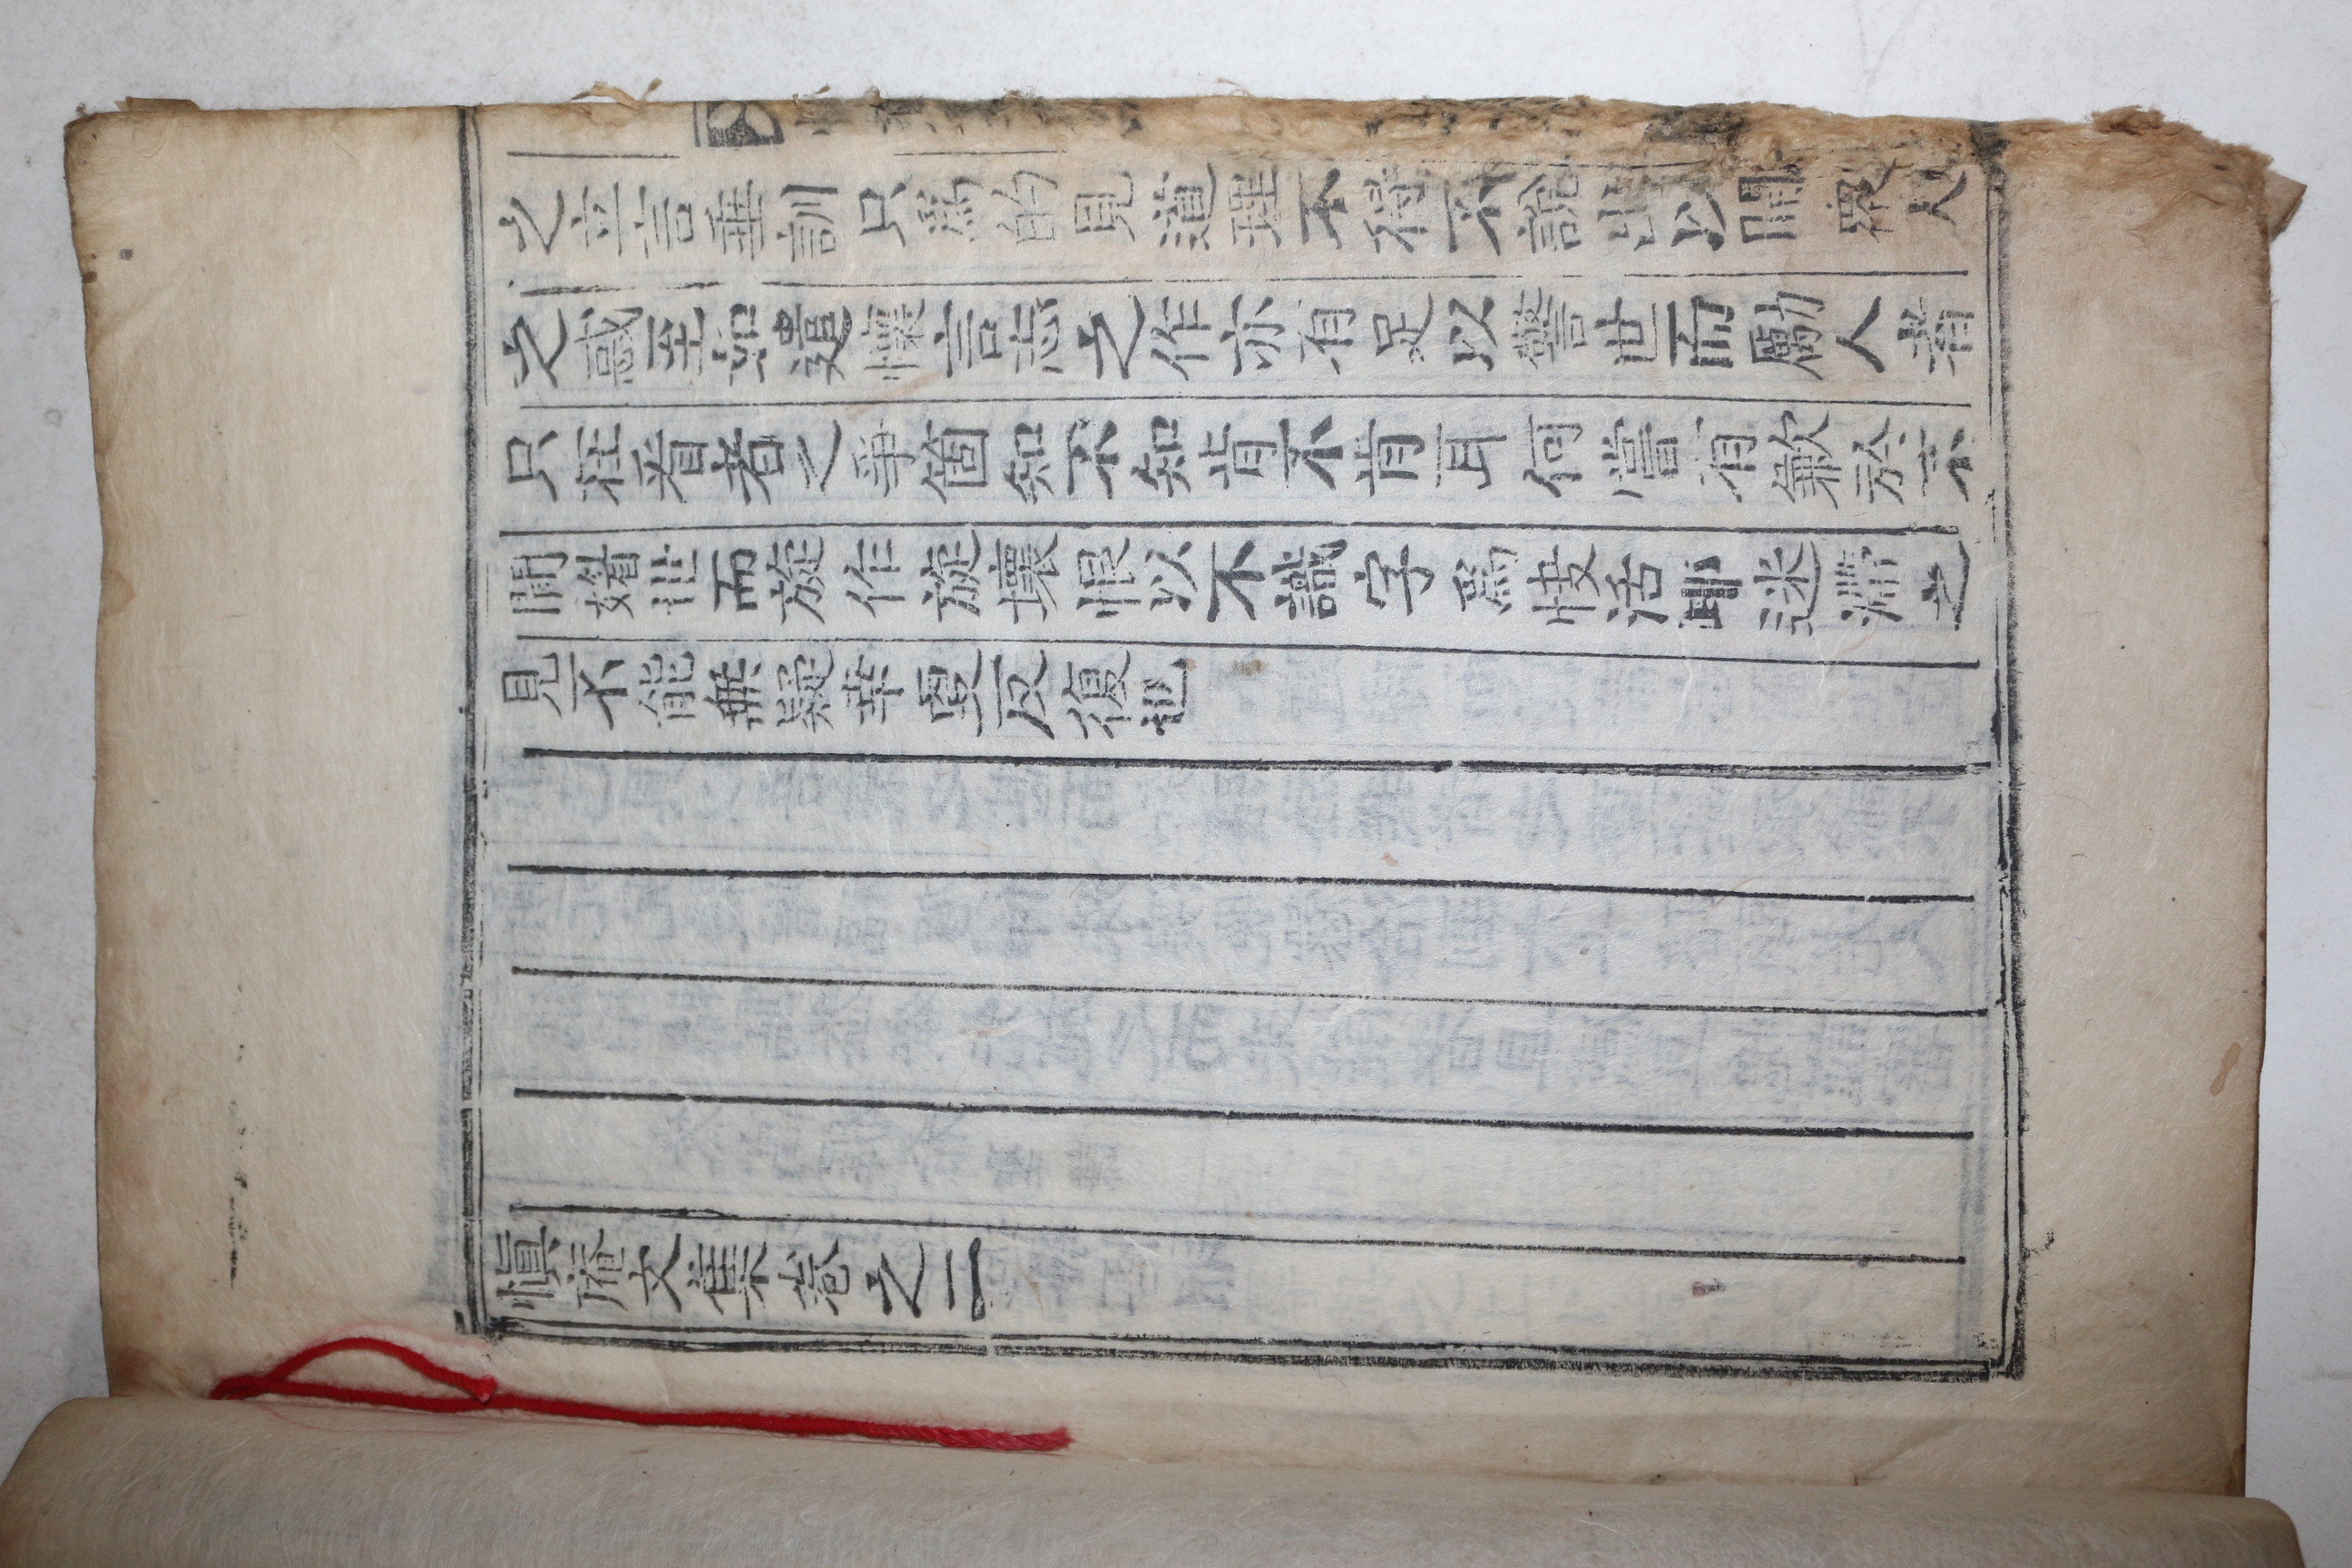 之立言垂訓只爲的見道理不得不說出以開衆人
之惑至如遣懷言志之作亦有足以警世而勵人者
只在看者之爭箇知不知肯不肯耳何嘗有歉於不
聞媎世而旋作旋壞恨以不識字爲快活耶迷滯之
見不能無疑幸更反復也
愼庵文集卷之二